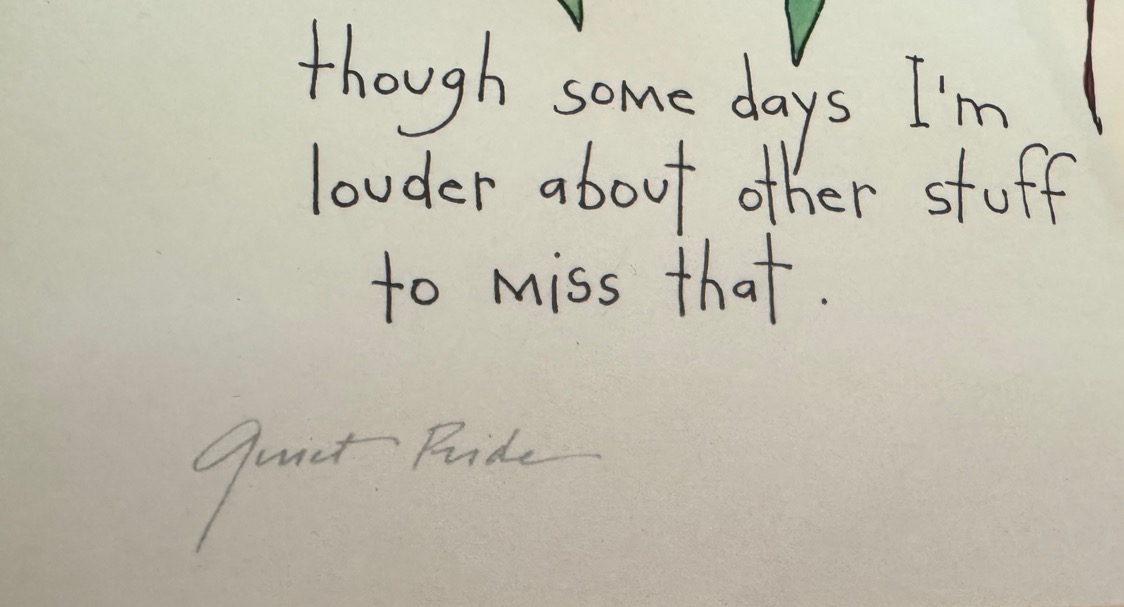 though some days I'm
louder about other stuff
to miss that.
Quiet Pride